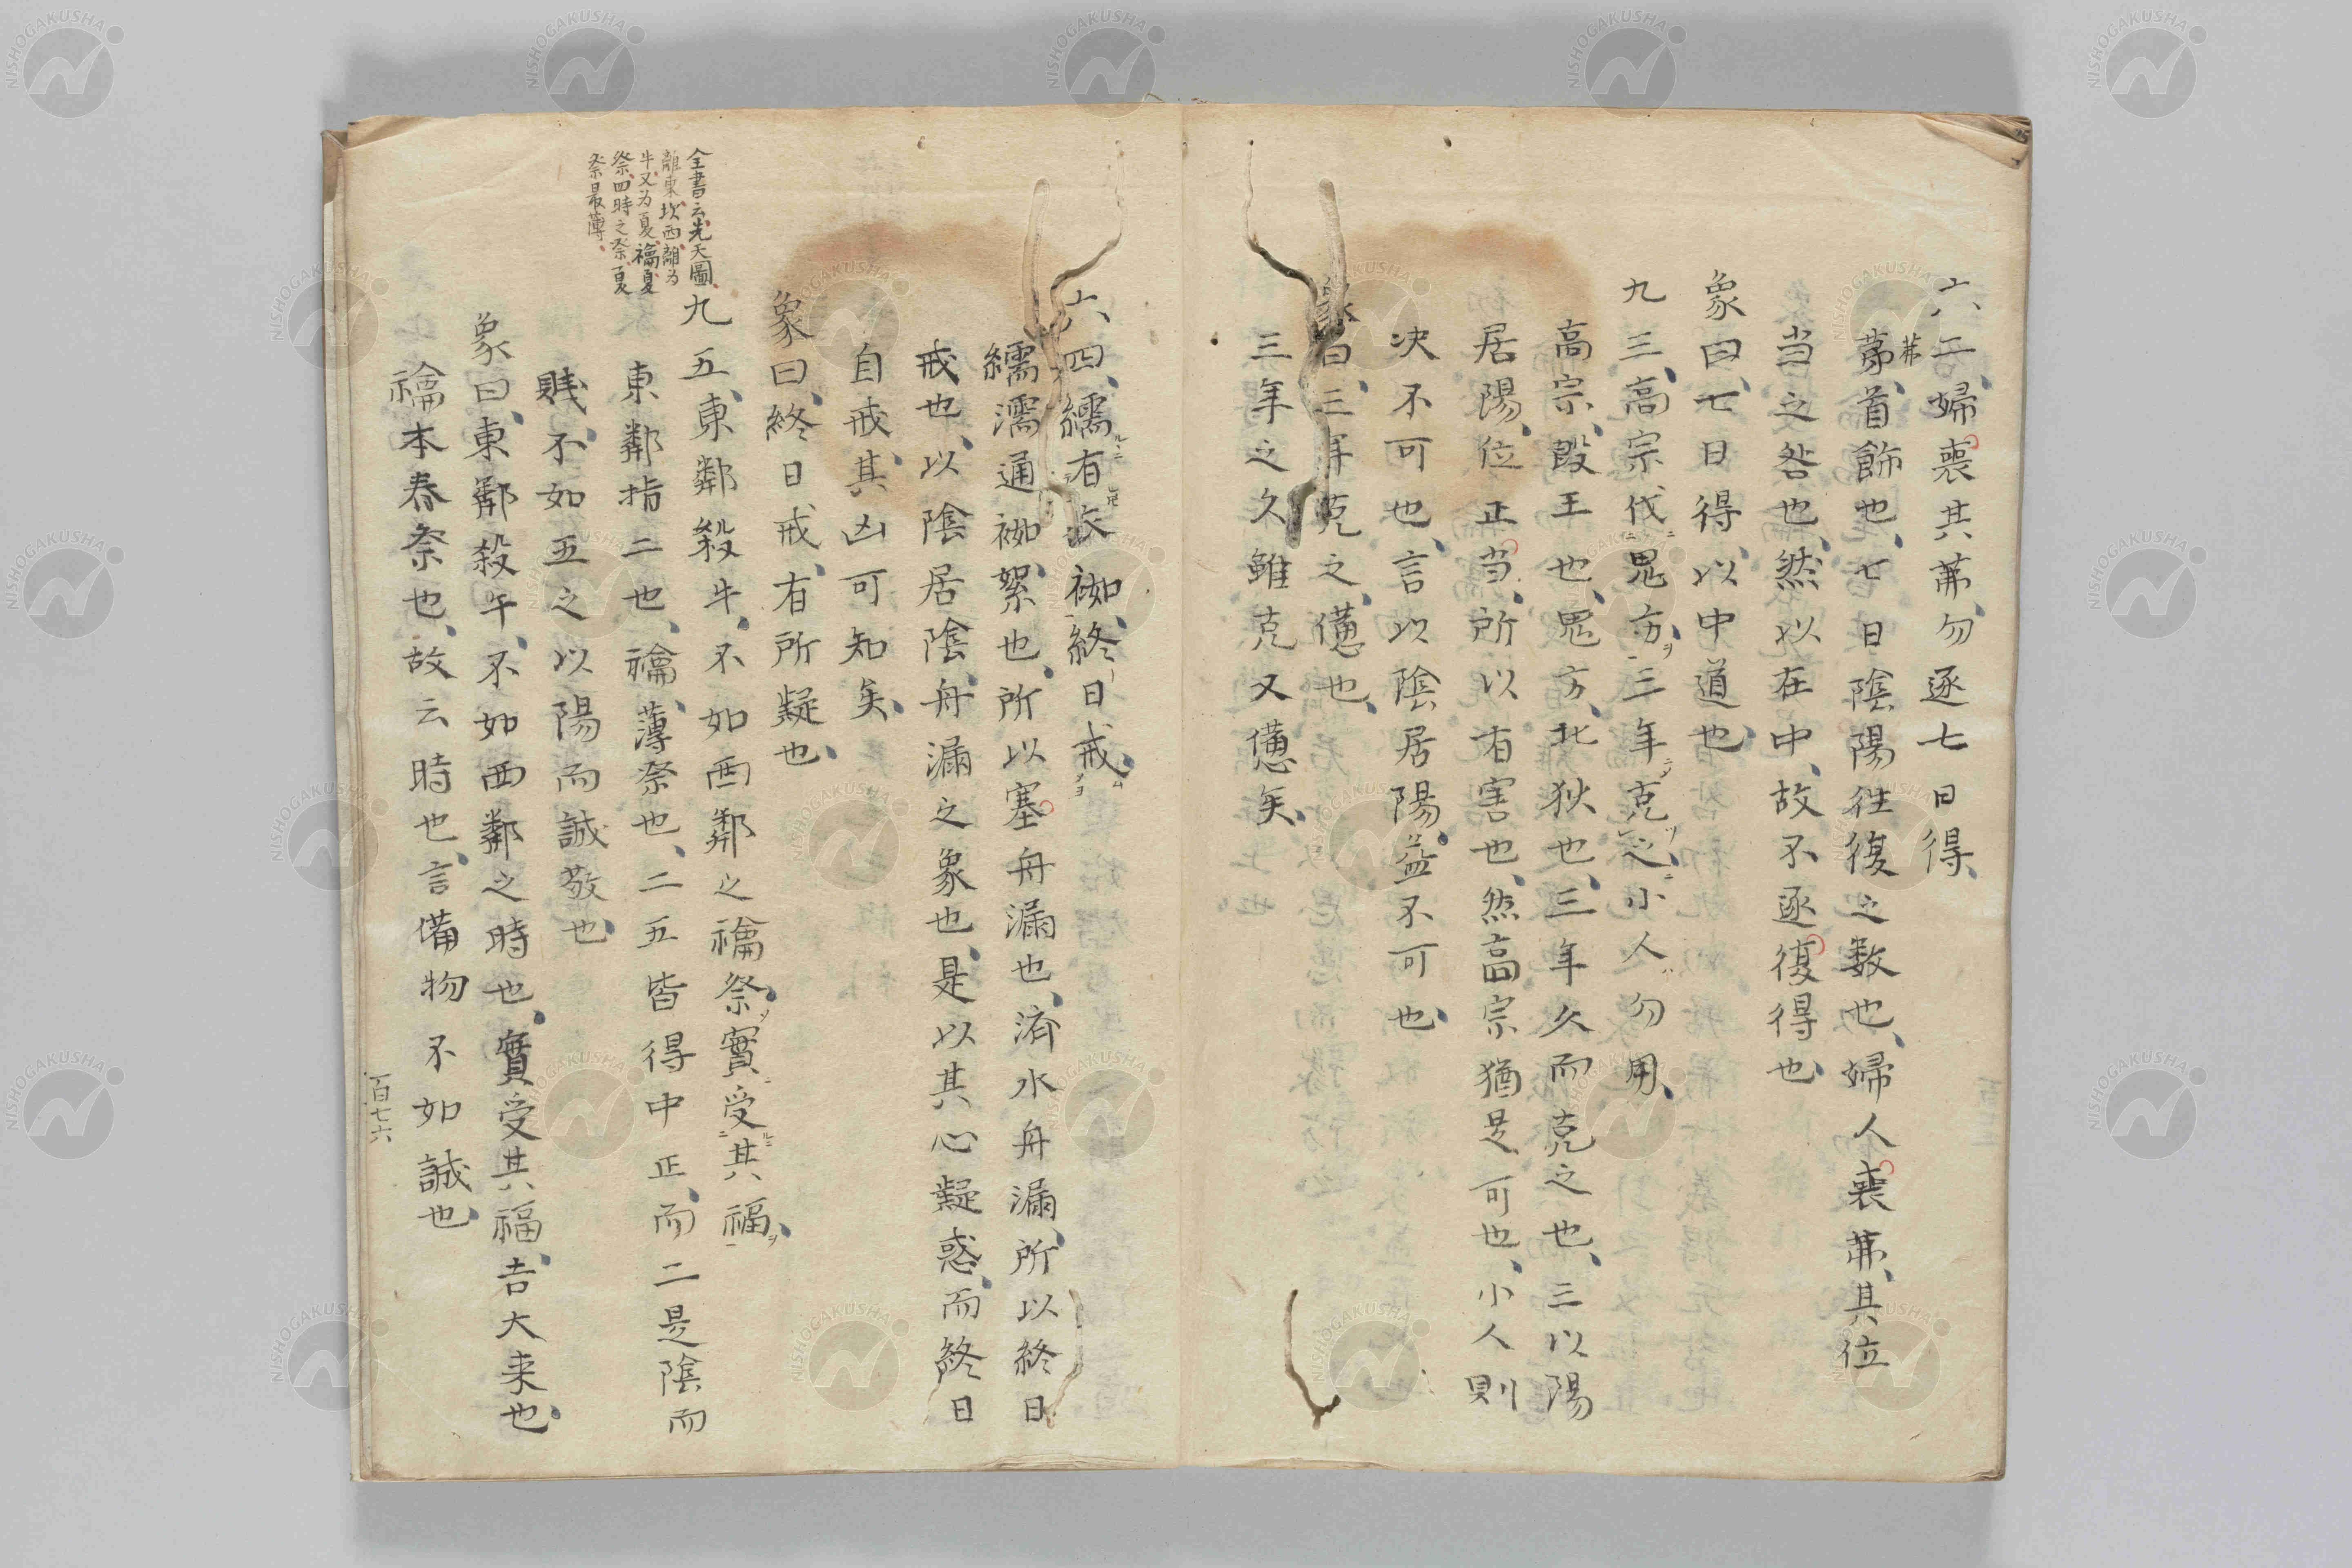 六二、婦喪其茀勿逐七日得、
茀、首飾也、七日陰陽往復之数也、婦人喪茀、其位
茀
当之咎也、然以在中、故不逐復得也、
象曰、七日得、以中道也、
九三、高宗伐鬼方、三年克之、小人勿用、
高宗、殷王也、鬼方、北狄也、三年久而克之也、三以陽
居陽、位正当、所以有害也、然高宗猶是可也、小人則
决不可也、言以陰居陽、益不可也、
象曰、三年克之、憊也、
三年之久雖克又憊矣、
六四、繻有衣袽、終日戒、
繻濡通袽、絮也、所以塞舟漏也、済水舟漏、所以終日
戒也、以陰居陰、舟漏之象也、是以其心疑惑、而終日
自戒、其凶可知矣、
象曰、終日戒、有所疑也、
全書云、先天圖、
離東、坎西、離為
牛、又為夏、禴、夏
祭、四時之祭、夏
祭最薄、
九五、東鄰殺牛、不如西鄰之禴祭、實受其福、
東鄰指二也、禴、薄祭也、二五皆得中正、而二是陰而
賎、不如五之以陽而誠敬也、
象曰、東鄰殺牛、不如西鄰之時也、實受其福、吉大来也、
禴本春祭也、故云時也、言備物不如誠也、
百七六
NISHOGAKUSHA